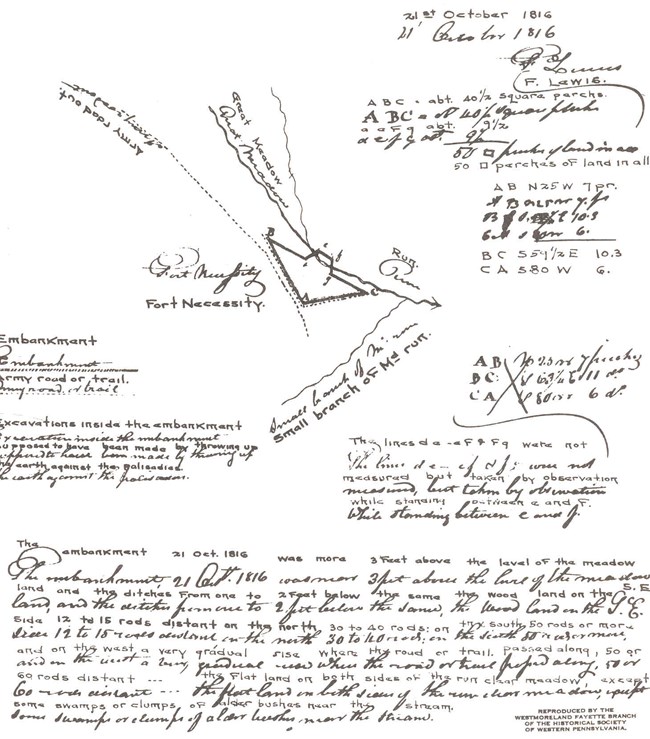 21st October 1816
21' October 1816
F. Lewis
F. LEWIS.
ABC = abt. 40½ square perchs.
ABC = abt 40½ square perches
a e F g abt. 9½
a e f g abt. 9½
50 □ perches of land in all
50 □ perches of land in all
AB N25W 7pr.
6.
BC S59½E 10.3
CA S80W 6.
Great Meadow
Great Meadow
Army road out
B
C
e
f
g
Run.
Run
Fort Necessity
FORT NECESSITY.
Small branch of Mdº run
Small branch of Mdº run.
Embankment
Embankment
Army road or trail.
Army road or trail
Excavations inside the embankment
Excavation inside the embankment
supposed to have been made by throwing up
supposed to have been made by throwing up
the earth against the palisades.
the earth against the palisades.
AB
BC:
CA
6 do.
The lines de - eF & Fg were not
The lines d e - ef & fg were not
measured but taken by observation
measured, but taken by observation
while standing between e and F.
While standing between e and f.
The embankment 21 Oct. 1816 was more 3 Feet above the level of the meadow
The embankment, 21 Octr. 1816 was near 3 feet above the level of the meadow
land and the ditches from one to 2 Feet below the same the wood land on the S.E
land, and the ditches from one to 2 feet below the same, the wood land on the S.E.
side 12 to 15 rods distant on the north, 30 to 40 rods: on the south, 50 rods or more
side 12 to 15 rods distant on the north 30 to 40 rods, on the south 50 rods or more,
and on the west a very gradual rise where the road or trail passed along, 50 or
and on the west a very gradual rise where the road or trail passed along, 50 or
60 rods distant --- the Flat land on both sides of the run clear meadow, except
60 rods distant --- the flat land on both sides of the run clear meadow, except
some swamps or clumps, of alder bushes near the stream.
some swamps or clumps of alder bushes near the stream.
REPRODUCED BY THE
WESTMORELAND FAYETTE BRANCH
OF THE HISTORICAL SOCIETY
OF WESTERN PENNSYLVANIA.